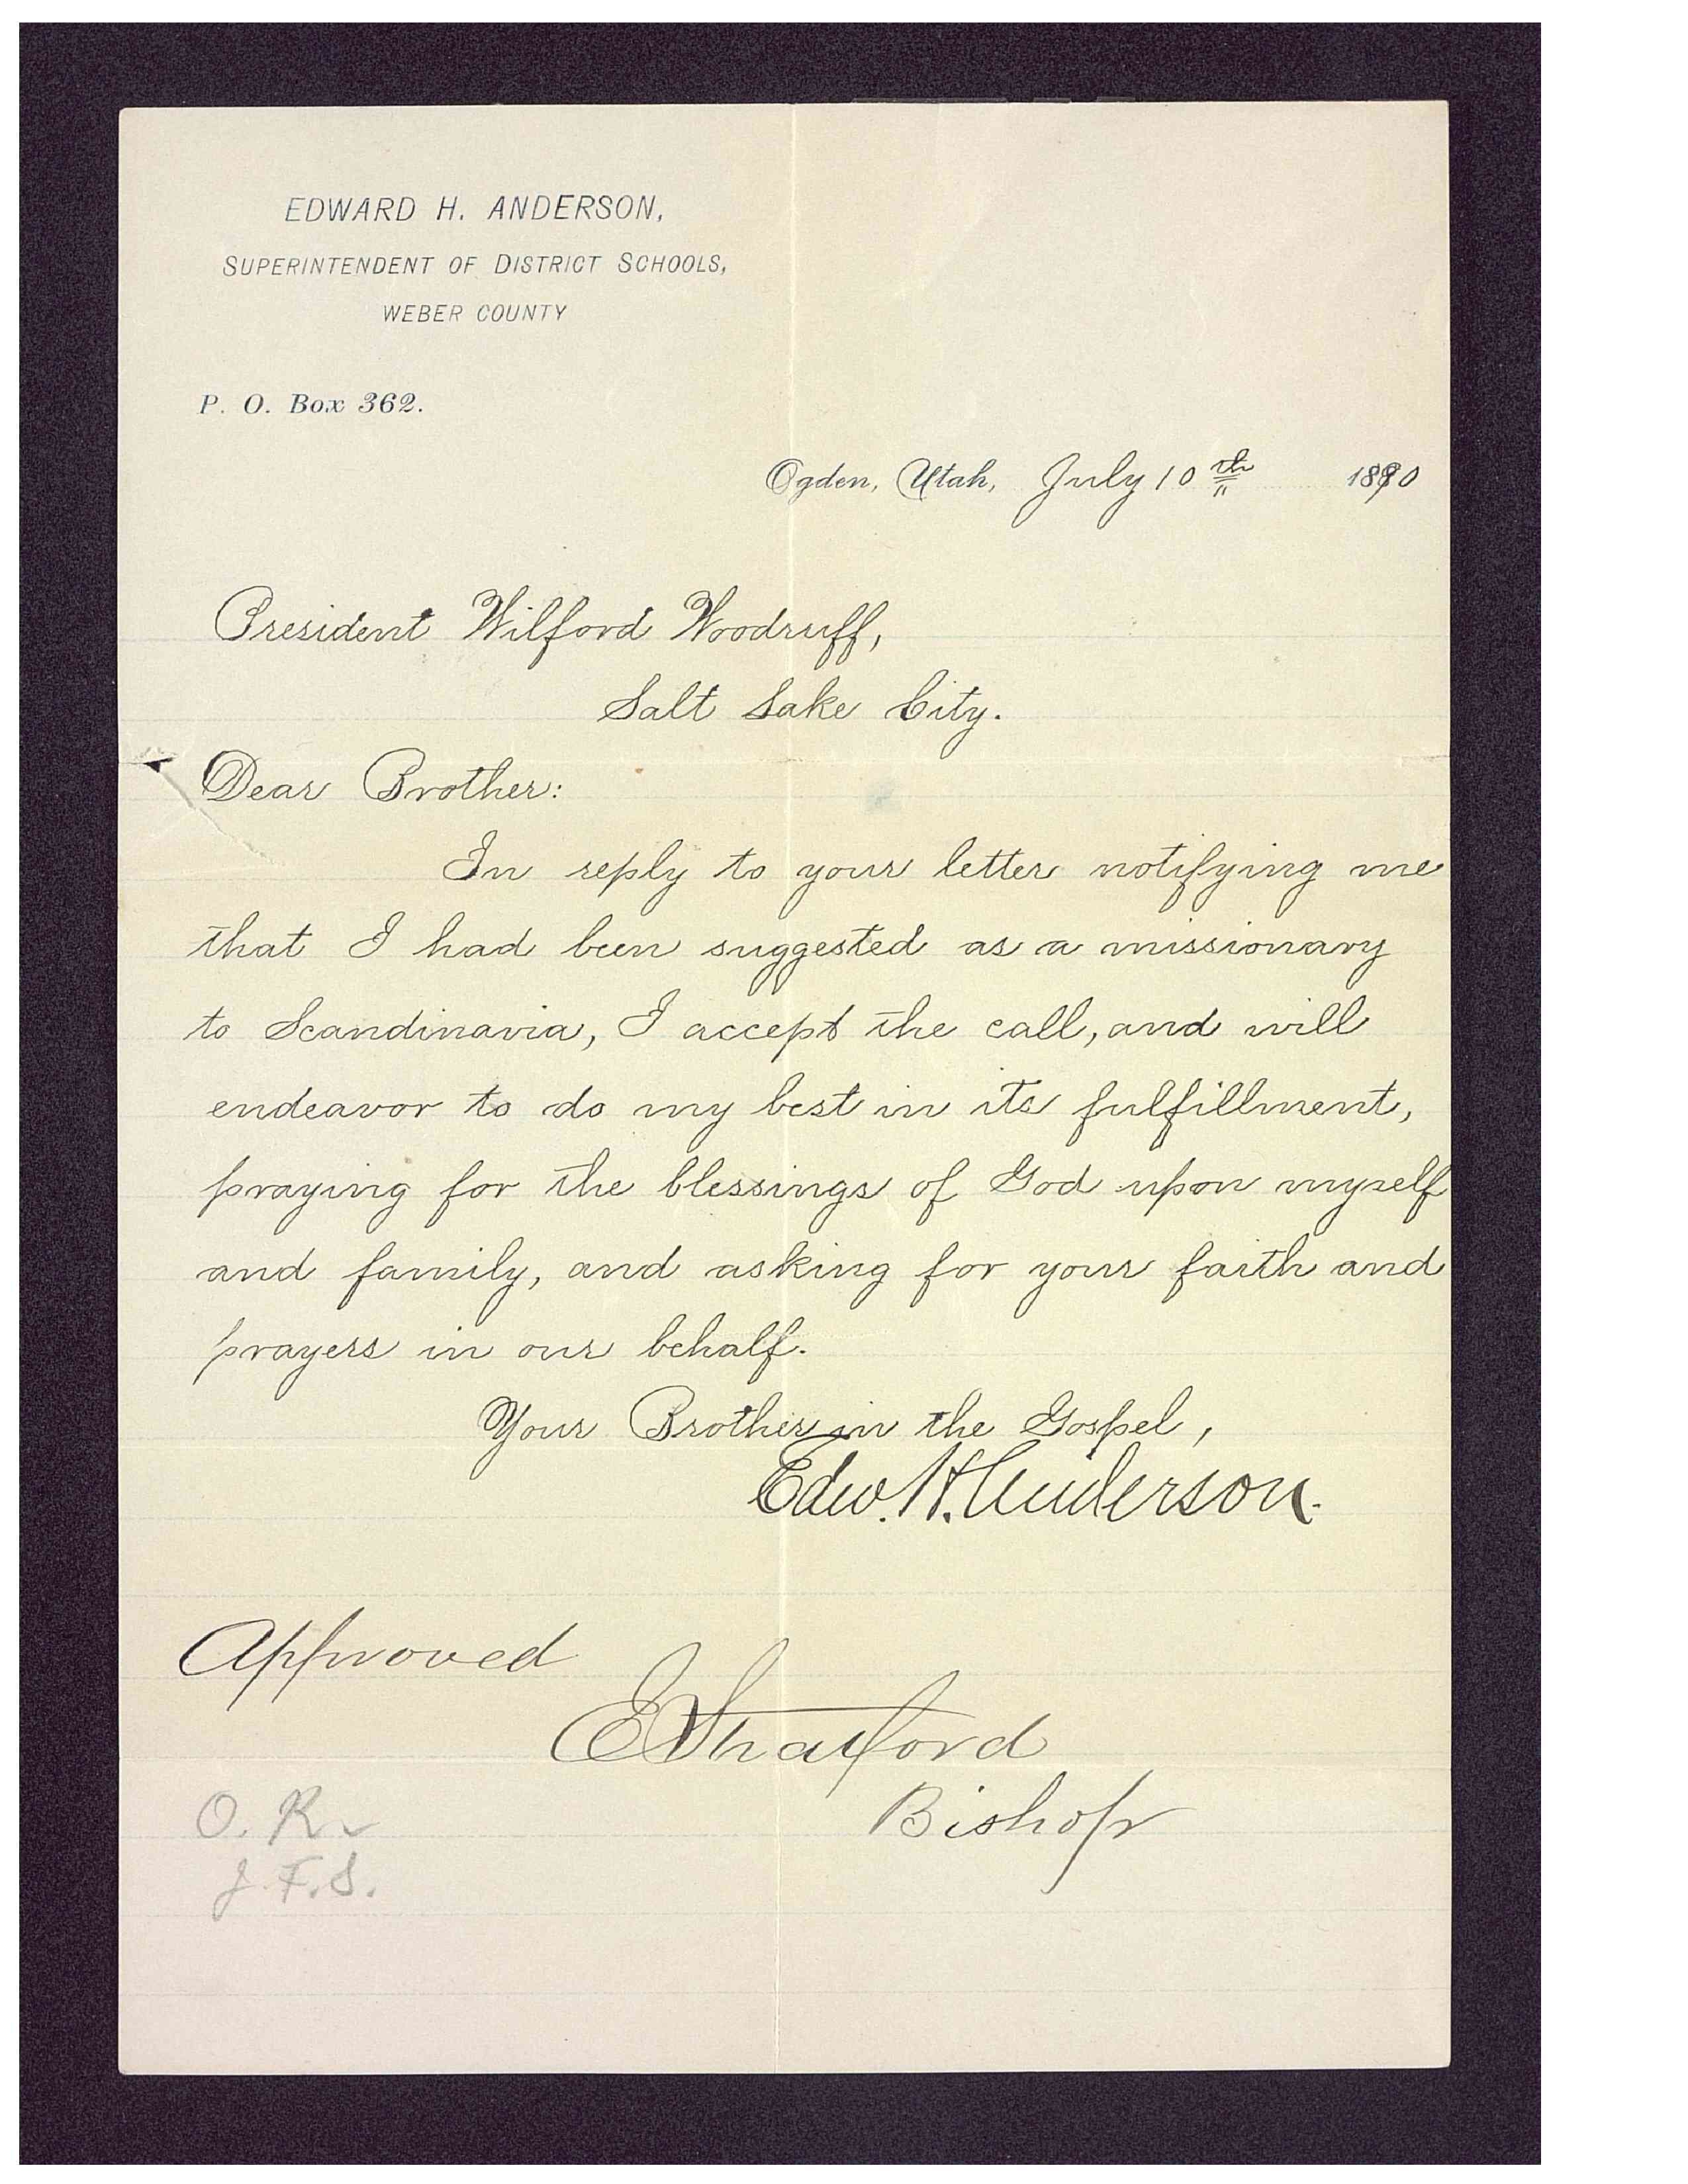 EDWARD H. ANDERSON,
SUPERINTENDENT OF DISTRICT SCHOOLS,
WEBER COUNTY
P. O. Box 362.
Ogden, Utah, July 10th 1890
President Wilford Woodruff,
Salt Lake City.
Dear Brother:
In reply to your letter notifying me
that I had been suggested as a missionary
to Scandinavia, I accept the call, and will
endeavor to do my best in its fulfillment,
praying for the blessings of God upon myself
and family, and asking for your faith and
prayers in our behalf.
Your Brother in the Gospel,
Edw. H. Anderson.
Approved
E Stratford
Bishop
O. K.
J. F. S.